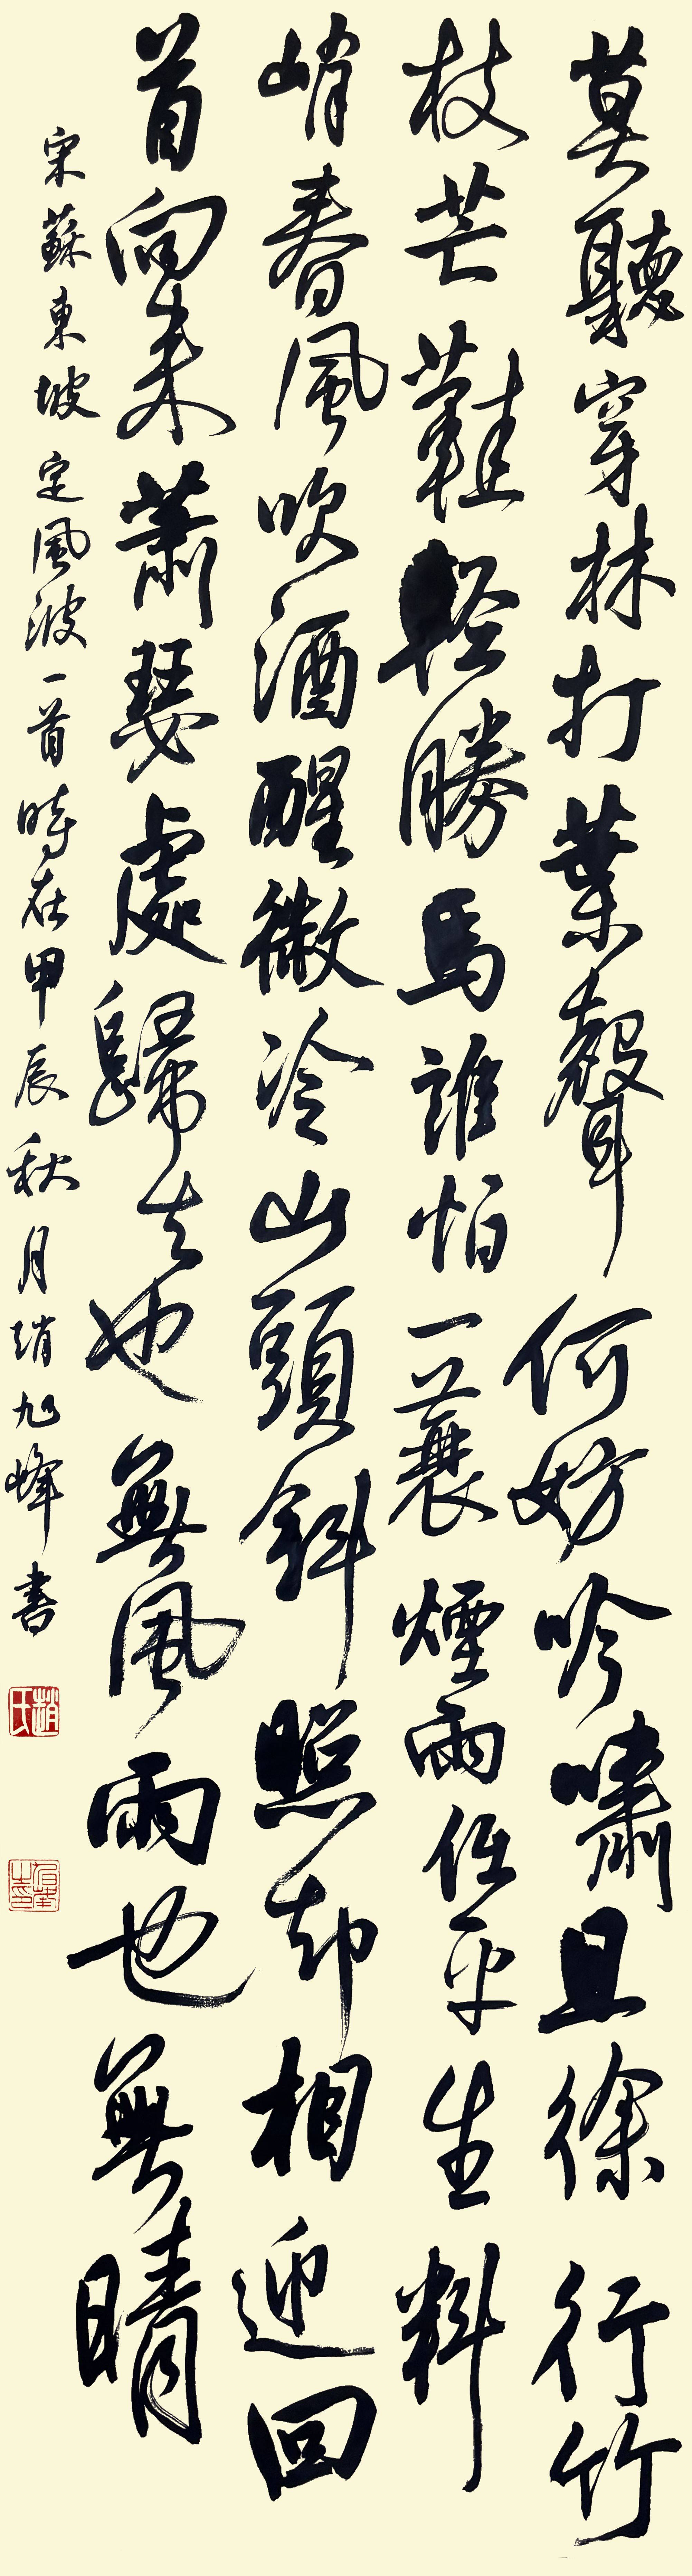 莫聽穿林打葉聲何妨吟嘯且徐行竹
杖芒鞋輕勝馬誰怕一蓑煙雨任平生料
峭春風吹酒醒微冷山頭斜照却相迎回
首向来蕭瑟處歸去也無風雨也無晴
宋蘇東坡定風波一首時在甲辰秋月趙旭峰書
趙氏